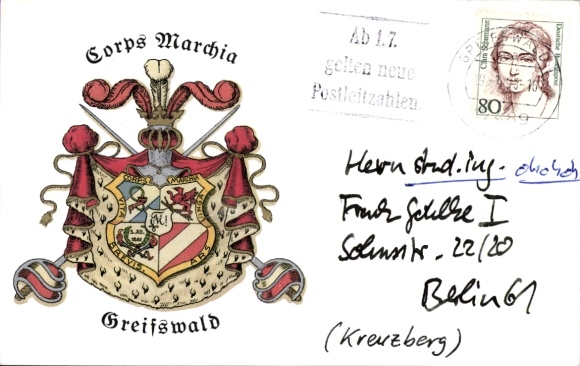 Corps Marchia
Greifswald
Ab 1.7.
gelten neue
Postleitzahlen
Clara Schumann
Deutsche Bundespost
80
GREIFSWALD
CORPS MARCHIA
VITA BREVIS
ARS
Herrn stud. ing.
Frank I
Solmsstr. 22/20
Berlin 61
(Kreuzberg)